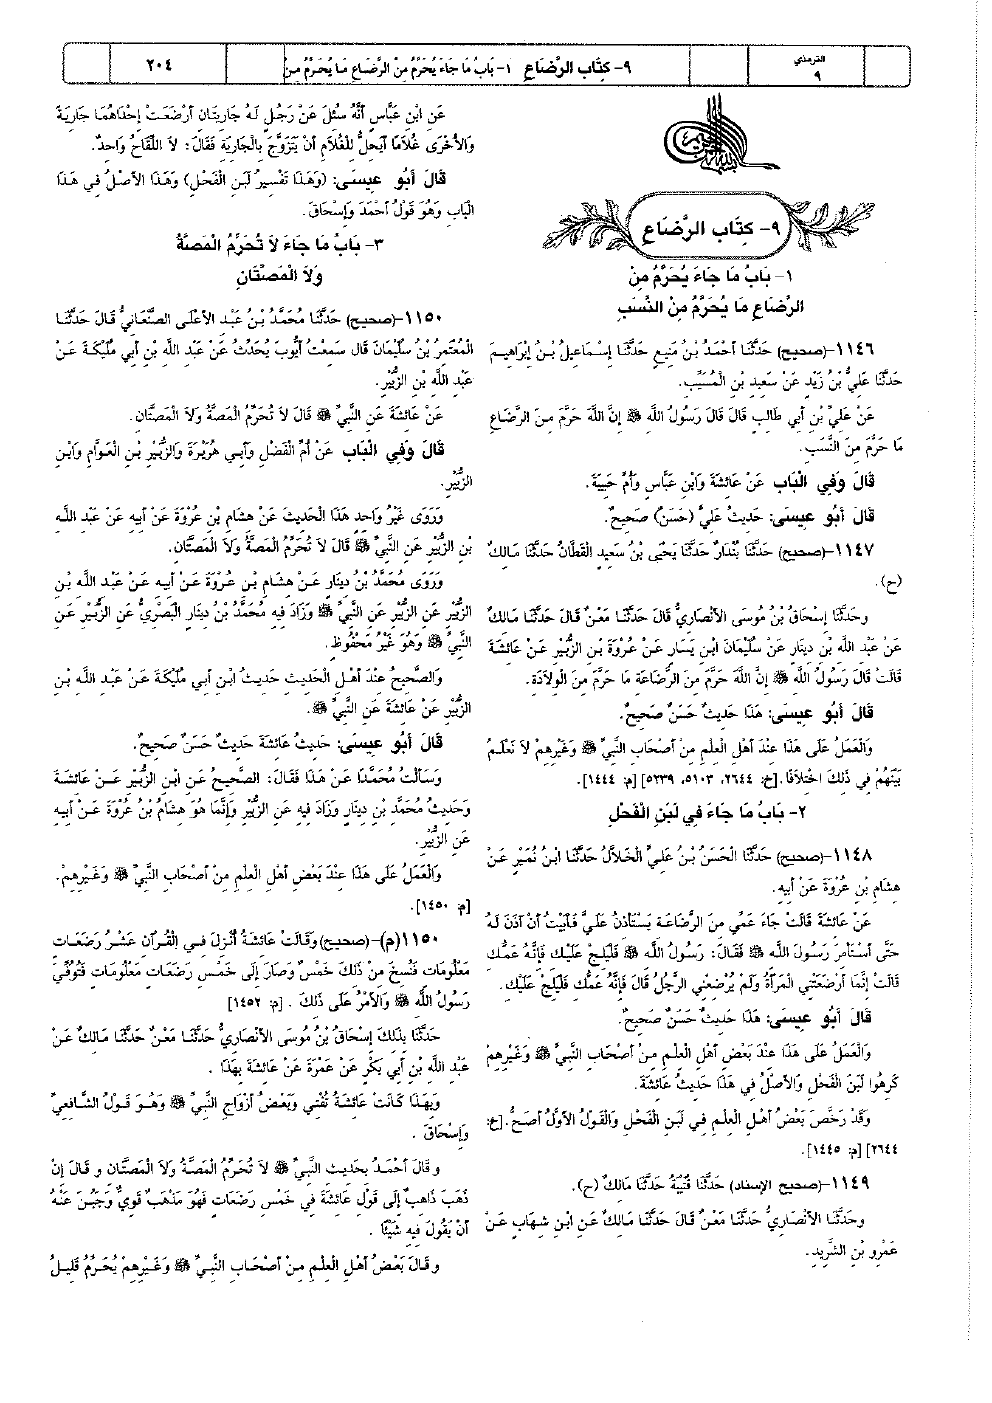 الترمذي
٩
٩- كِتَاب الرَّضَاعِ ١- بَابُ مَا جَاءَ يُحَرَّمُ مِنَ الرَّضَاعِ مَا يُحَرَّمُ مِنْ
٢٠٤
٩- كِتَاب الرَّضَاعِ
١- بَابُ مَا جَاءَ يُحَرَّمُ مِنَ
الرَّضَاعِ مَا يُحَرَّمُ مِنَ النَّسَبِ
١١٤٦-(صحيح) حَدَّثَنَا أَحْمَدُ بْنُ مَنِيعٍ حَدَّثَنَا إِسْمَاعِيلُ بْنُ إِبْرَاهِيمَ
حَدَّثَنَا عَلِيُّ بْنُ زَيْدٍ عَنْ سَعِيدِ بْنِ الْمُسَيَّبِ.
عَنْ عَلِيِّ بْنِ أَبِي طَالِبٍ قَالَ قَالَ رَسُولُ اللَّه ﷺ إِنَّ اللَّهَ حَرَّمَ مِنَ الرَّضَاعِ
مَا حَرَّمَ مِنَ النَّسَبِ.
قَالَ وَفِي الْبَاب عَنْ عَائِشَةَ وَابْنِ عَبَّاسٍ وَأُمِّ حَبِيبَةَ.
قَالَ أَبُو عِيسَى: حَدِيثُ عَلِيٍّ (حَسَنٌ) صَحِيحٌ.
١١٤٧-(صحيح) حَدَّثَنَا بُنْدَارٌ حَدَّثَنَا يَحْيَى بْنُ سَعِيدٍ الْقَطَّانُ حَدَّثَنَا مَالِكٌ
(ح).
وحَدَّثَنَا إِسْحَاقُ بْنُ مُوسَى الأَنْصَارِيُّ قَالَ حَدَّثَنَا مَعْنٌ قَالَ حَدَّثَنَا مَالِكٌ
عَنْ عَبْدِ اللَّه بْنِ دِينَارٍ عَنْ سُلَيْمَانَ ابْنِ يَسَارٍ عَنْ عُرْوَةَ بْنِ الزُّبَيْرِ عَنْ عَائِشَةَ
قَالَتْ قَالَ رَسُولُ اللَّه ﷺ إِنَّ اللَّهَ حَرَّمَ مِنَ الرَّضَاعَةِ مَا حَرَّمَ مِنَ الْوِلاَدَةِ.
قَالَ أَبُو عِيسَى: هَذَا حَدِيثٌ حَسَنٌ صَحِيحٌ.
وَالْعَمَلُ عَلَى هَذَا عِنْدَ أَهْلِ الْعِلْمِ مِنْ أَصْحَابِ النَّبِيِّ ﷺ وَغَيْرِهِمْ لاَ نَعْلَمُ
بَيْنَهُمْ فِي ذَلِكَ اخْتِلاَفًا.[خ: ٢٦٤٤، ٥١٠٣، ٥٢٣٩] [م: ١٤٤٤].
٢- بَابُ مَا جَاءَ فِي لَبَنِ الْفَحْلِ
١١٤٨-(صحيح) حَدَّثَنَا الْحَسَنُ بْنُ عَلِيٍّ الْخَلاَّلُ حَدَّثَنَا ابْنُ نُمَيْرٍ عَنْ
هِشَامِ بْنِ عُرْوَةَ عَنْ أَبِيهِ.
عَنْ عَائِشَةَ قَالَتْ جَاءَ عَمِّي مِنَ الرَّضَاعَةِ يَسْتَأْذِنُ عَلَيَّ فَأَبَيْتُ أَنْ آذَنَ لَهُ
حَتَّى أَسْتَأْمِرَ رَسُولَ اللَّه ﷺ فَقَالَ: رَسُولُ اللَّه ﷺ فَلْيَلِجْ عَلَيْكِ فَإِنَّهُ عَمُّكِ
قَالَتْ إِنَّمَا أَرْضَعَتْنِي الْمَرْأَةُ وَلَمْ يُرْضِعْنِي الرَّجُلُ قَالَ فَإِنَّهُ عَمُّكِ فَلْيَلِجْ عَلَيْكِ.
قَالَ أَبُو عِيسَى: هَذَا حَدِيثٌ حَسَنٌ صَحِيحٌ.
وَالْعَمَلُ عَلَى هَذَا عِنْدَ بَعْضِ أَهْلِ الْعِلْمِ مِنْ أَصْحَابِ النَّبِيِّ ﷺ وَغَيْرِهِمْ
كَرِهُوا لَبَنَ الْفَحْلِ وَالأَصْلُ فِي هَذَا حَدِيثُ عَائِشَةَ.
وَقَدْ رَخَّصَ بَعْضُ أَهْلِ الْعِلْمِ فِي لَبَنِ الْفَحْلِ وَالْقَوْلُ الأَوَّلُ أَصَحُّ.[خ:
٢٦٤٤] [م: ١٤٤٥].
١١٤٩-(صحيح الإسناد) حَدَّثَنَا قُتَيْبَةُ حَدَّثَنَا مَالِكٌ (ح).
وحَدَّثَنَا الأَنْصَارِيُّ حَدَّثَنَا مَعْنٌ قَالَ حَدَّثَنَا مَالِكٌ عَنِ ابْنِ شِهَابٍ عَنْ
عَمْرِو بْنِ الشَّرِيدِ.
عَنِ ابْنِ عَبَّاسٍ أَنَّهُ سُئِلَ عَنْ رَجُلٍ لَهُ جَارِيَتَانِ أَرْضَعَتْ إِحْدَاهُمَا جَارِيَةً
وَالأُخْرَى غُلاَمًا أَيَحِلُّ لِلْغُلاَمِ أَنْ يَتَزَوَّجَ بِالْجَارِيَةِ فَقَالَ: لاَ اللِّقَاحُ وَاحِدٌ.
قَالَ أَبُو عِيسَى: (وَهَذَا تَفْسِيرُ لَبَنِ الْفَحْلِ) وَهَذَا الأَصْلُ فِي هَذَا
الْبَابِ وَهُوَ قَوْلُ أَحْمَدَ وَإِسْحَاقَ.
٣- بَابُ مَا جَاءَ لاَ تُحَرِّمُ الْمَصَّةُ
وَلاَ الْمَصَّتَانِ
١١٥٠-(صحيح) حَدَّثَنَا مُحَمَّدُ بْنُ عَبْدِ الأَعْلَى الصَّنْعَانِيُّ قَالَ حَدَّثَنَا
الْمُعْتَمِرُ بْنُ سُلَيْمَانَ قَال سَمِعْتُ أَيُّوبَ يُحَدِّثُ عَنْ عَبْدِ اللَّه بْنِ أَبِي مُلَيْكَةَ عَنْ
عَبْدِ اللَّه بْنِ الزُّبَيْرِ.
عَنْ عَائِشَةَ عَنِ النَّبِيِّ ﷺ قَالَ لاَ تُحَرِّمُ الْمَصَّةُ وَلاَ الْمَصَّتَانِ.
قَالَ وَفِي الْبَاب عَنْ أُمِّ الْفَضْلِ وَأَبِي هُرَيْرَةَ وَالزُّبَيْرِ بْنِ الْعَوَّامِ وَابْنِ
الزُّبَيْرِ.
وَرَوَى غَيْرُ وَاحِدٍ هَذَا الْحَدِيثَ عَنْ هِشَامِ بْنِ عُرْوَةَ عَنْ أَبِيهِ عَنْ عَبْدِ اللَّه
بْنِ الزُّبَيْرِ عَنِ النَّبِيِّ ﷺ قَالَ لاَ تُحَرِّمُ الْمَصَّةُ وَلاَ الْمَصَّتَانِ.
وَرَوَى مُحَمَّدُ بْنُ دِينَارٍ عَنْ هِشَامِ بْنِ عُرْوَةَ عَنْ أَبِيهِ عَنْ عَبْدِ اللَّه بْنِ
الزُّبَيْرِ عَنِ الزُّبَيْرِ عَنِ النَّبِيِّ ﷺ وَزَادَ فِيهِ مُحَمَّدُ بْنُ دِينَارٍ الْبَصْرِيُّ عَنِ الزُّبَيْرِ عَنِ
النَّبِيِّ ﷺ وَهُوَ غَيْرُ مَحْفُوظٍ.
وَالصَّحِيحُ عِنْدَ أَهْلِ الْحَدِيثِ حَدِيثُ ابْنِ أَبِي مُلَيْكَةَ عَنْ عَبْدِ اللَّه بْنِ
الزُّبَيْرِ عَنْ عَائِشَةَ عَنِ النَّبِيِّ ﷺ.
قَالَ أَبُو عِيسَى: حَدِيثُ عَائِشَةَ حَدِيثٌ حَسَنٌ صَحِيحٌ.
وَسَأَلْتُ مُحَمَّدًا عَنْ هَذَا فَقَالَ: الصَّحِيحُ عَنِ ابْنِ الزُّبَيْرِ عَنْ عَائِشَةَ
وَحَدِيثُ مُحَمَّدِ بْنِ دِينَارٍ وَزَادَ فِيهِ عَنِ الزُّبَيْرِ وَإِنَّمَا هُوَ هِشَامُ بْنُ عُرْوَةَ عَنْ أَبِيهِ
عَنِ الزُّبَيْرِ.
وَالْعَمَلُ عَلَى هَذَا عِنْدَ بَعْضِ أَهْلِ الْعِلْمِ مِنْ أَصْحَابِ النَّبِيِّ ﷺ وَغَيْرِهِمْ.
[م: ١٤٥٠].
١١٥٠(م)-(صحيح) وَقَالَتْ عَائِشَةُ أُنْزِلَ فِي الْقُرْآنِ عَشْرُ رَضَعَاتٍ
مَعْلُومَاتٍ فَنُسِخَ مِنْ ذَلِكَ خَمْسٌ وَصَارَ إِلَى خَمْسِ رَضَعَاتٍ مَعْلُومَاتٍ فَتُوُفِّيَ
رَسُولُ اللَّه ﷺ وَالأَمْرُ عَلَى ذَلِكَ . [م: ١٤٥٢]
حَدَّثَنَا بِذَلِكَ إِسْحَاقُ بْنُ مُوسَى الأَنْصَارِيُّ حَدَّثَنَا مَعْنٌ حَدَّثَنَا مَالِكٌ عَنْ
عَبْدِ اللَّه بْنِ أَبِي بَكْرٍ عَنْ عَمْرَةَ عَنْ عَائِشَةَ بِهَذَا .
وَبِهَذَا كَانَتْ عَائِشَةُ تُفْتِي وَبَعْضُ أَزْوَاجِ النَّبِيِّ ﷺ وَهُوَ قَوْلُ الشَّافِعِيِّ
وَإِسْحَاقَ .
و قَالَ أَحْمَدُ بِحَدِيثِ النَّبِيِّ ﷺ لاَ تُحَرِّمُ الْمَصَّةُ وَلاَ الْمَصَّتَانِ و قَالَ إِنْ
ذَهَبَ ذَاهِبٌ إِلَى قَوْلِ عَائِشَةَ فِي خَمْسِ رَضَعَاتٍ فَهُوَ مَذْهَبٌ قَوِيٌّ وَجَبُنَ عَنْهُ
أَنْ يَقُولَ فِيهِ شَيْئًا .
و قَالَ بَعْضُ أَهْلِ الْعِلْمِ مِنْ أَصْحَابِ النَّبِيِّ ﷺ وَغَيْرِهِمْ يُحَرِّمُ قَلِيلُ